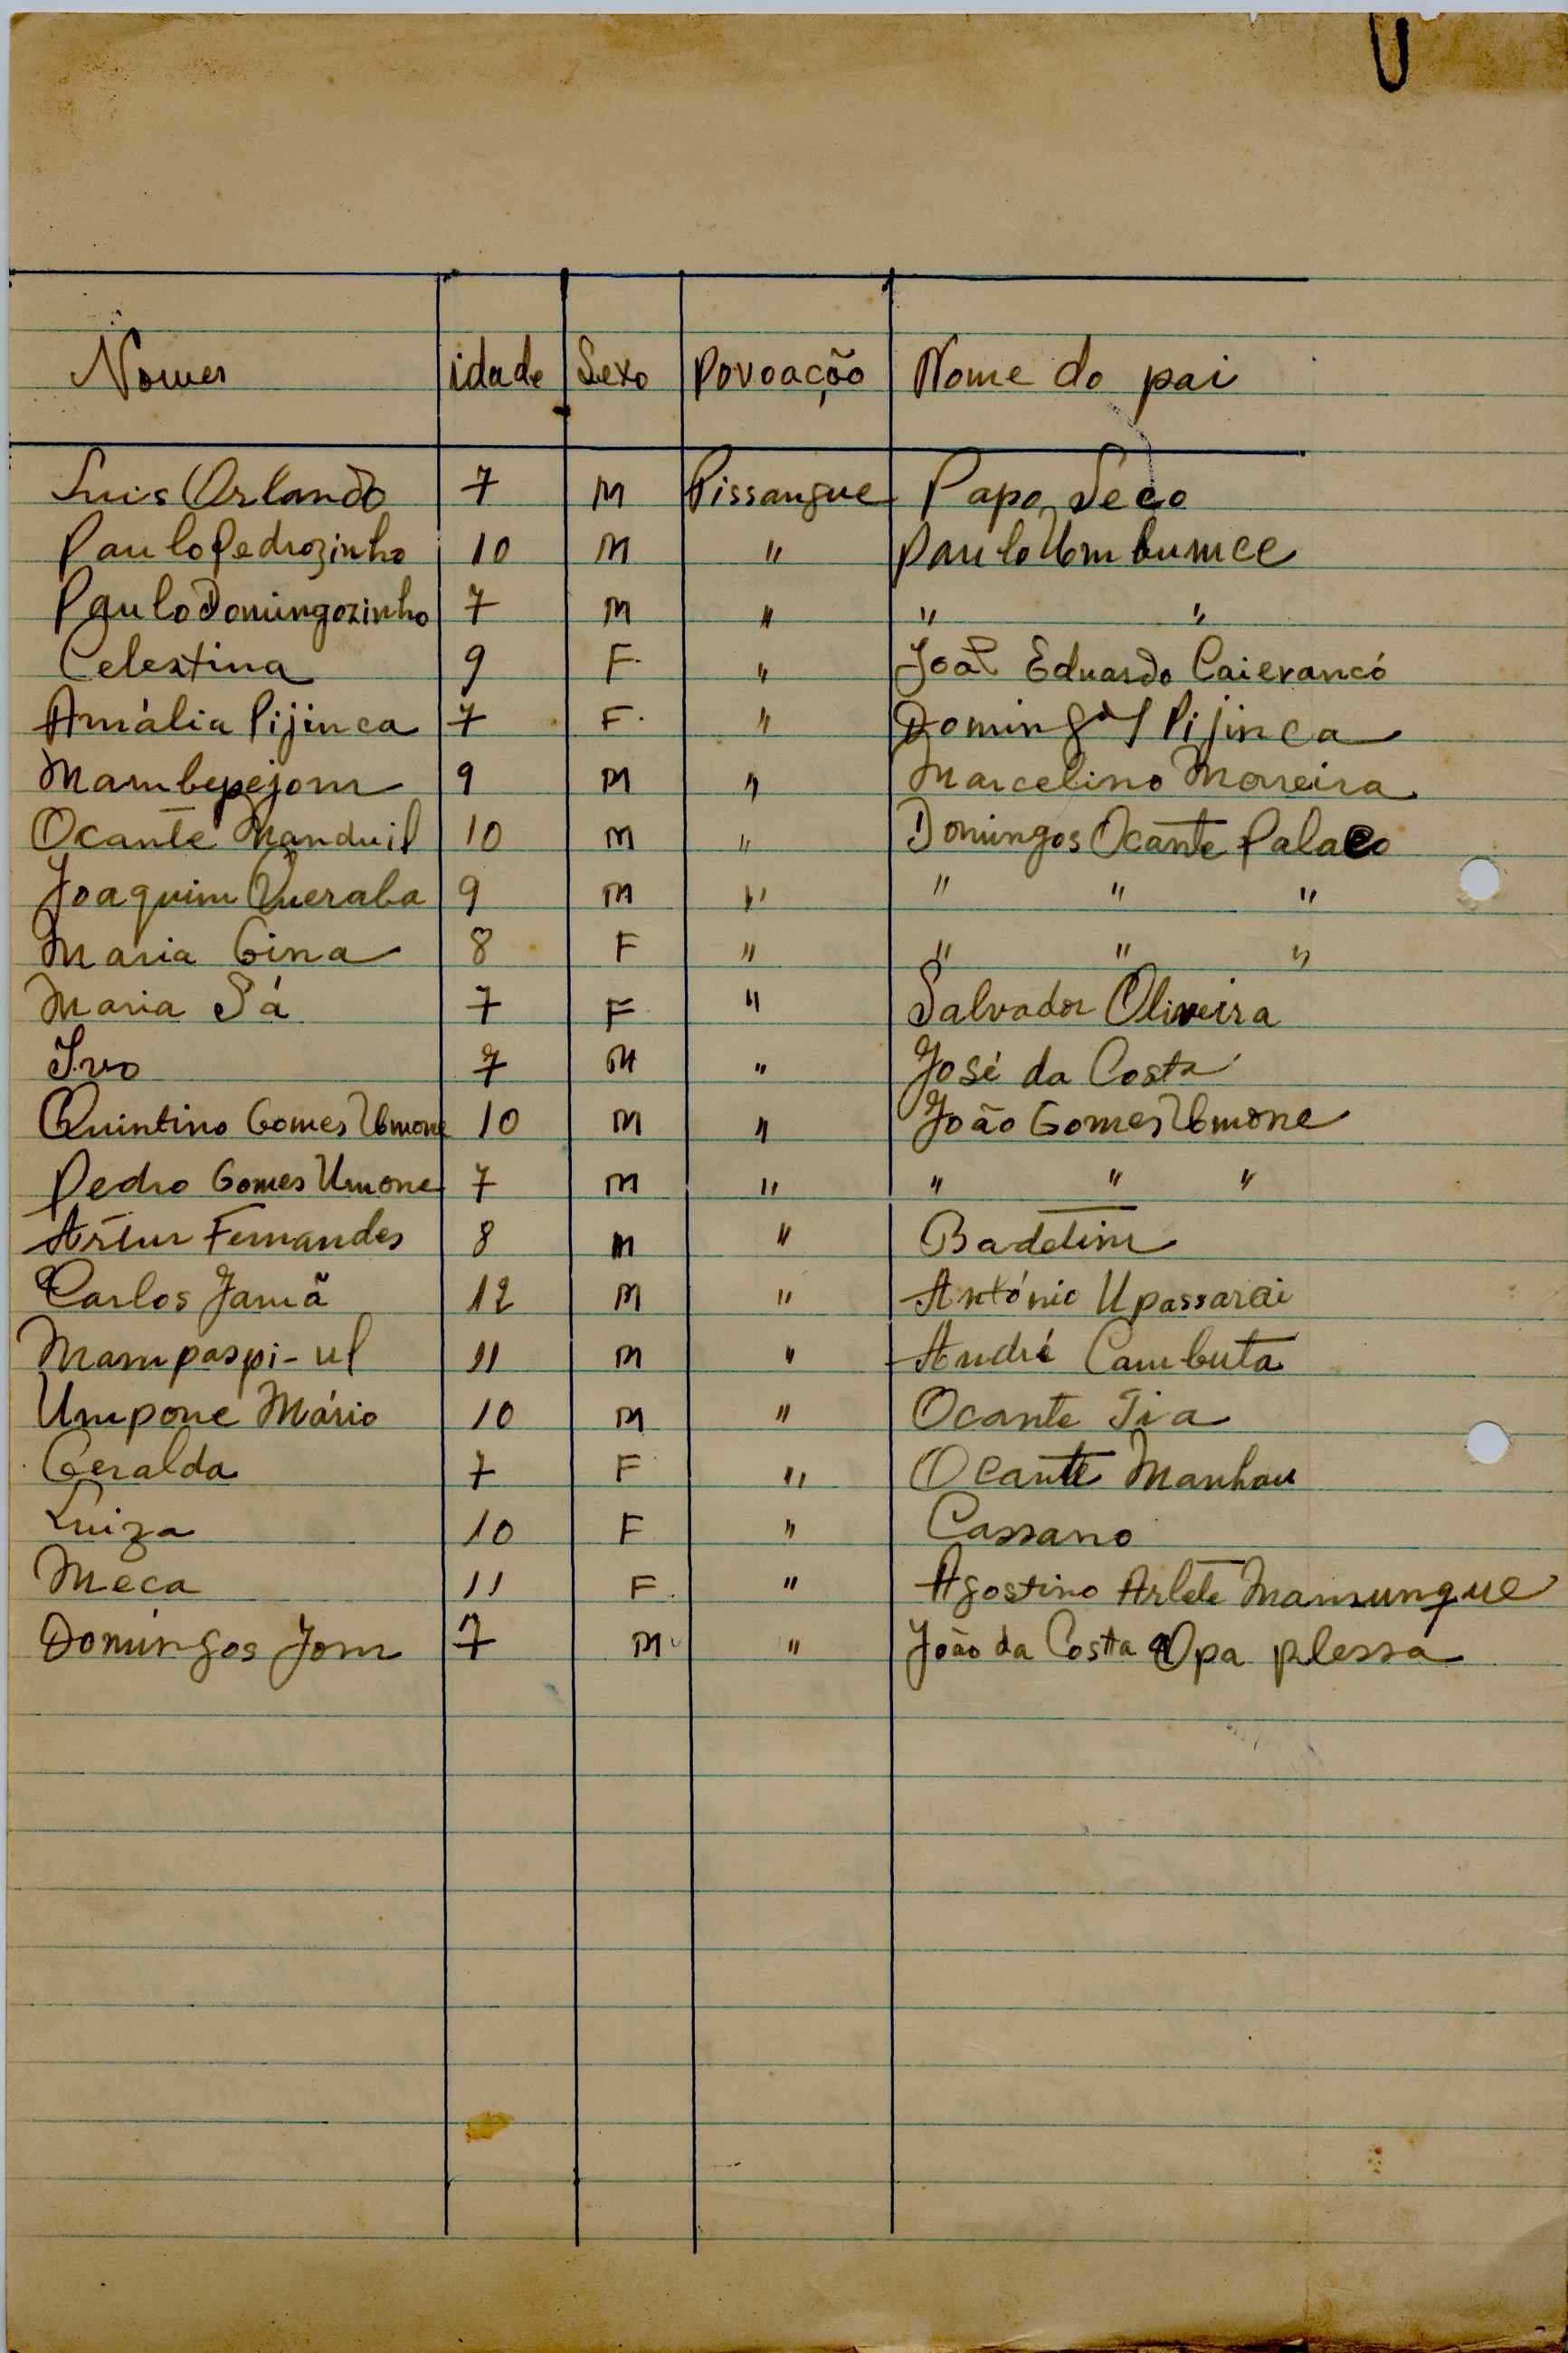 Nomes idade Sexo Povoação Nome do pai
Luis Orlando 7 M Pissangue Papo Seco
Paulo Pedrozinho 10 M " Paulo Umbumce
Paulo Domingozinho 7 M " " "
Celestina 9 F " João Eduardo Caierancó
Amália Pijinca 7 F " Domingos Pijinca
Mambepejom 9 M " Marcelino Moreira
Ocante Nanduil 10 M " Domingos Ocante Palaco
Joaquim Queraba 9 M " " " "
Maria Gina 8 F " " " "
Maria Sá 7 F " Salvador Oliveira
Ivo 7 M " José da Costa
Quintino Gomes Umone 10 M " João Gomes Umone
Pedro Gomes Umone 7 M " " " "
Artur Fernandes 8 M " Badetim
Carlos Jamã 12 M " António Upassarai
Mampaspi-ul 11 M " André Cambuta
Umpone Mário 10 M " Ocante Tia
Geralda 7 F " Ocante Manhau
Luiza 10 F " Cassano
Meca 11 F " Agostino Arlete Mansungue
Domingos Jom 7 M " João da Costa Opa plessa